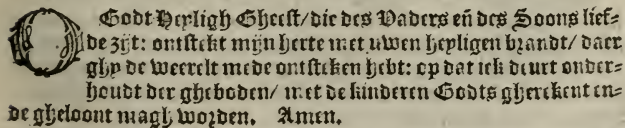 O Godt Heyligh Gheest/ die des Vaders eñ des Soons lief-
de zijt: ontstekt mijn herte met uwen heyligen brandt/ daer
ghy de weerelt mede ontsteken hebt: op dat ick deurt onder=
houdt der gheboden/ met de kinderen Godts gherekent en-
de gheloont magh worden. Amen.